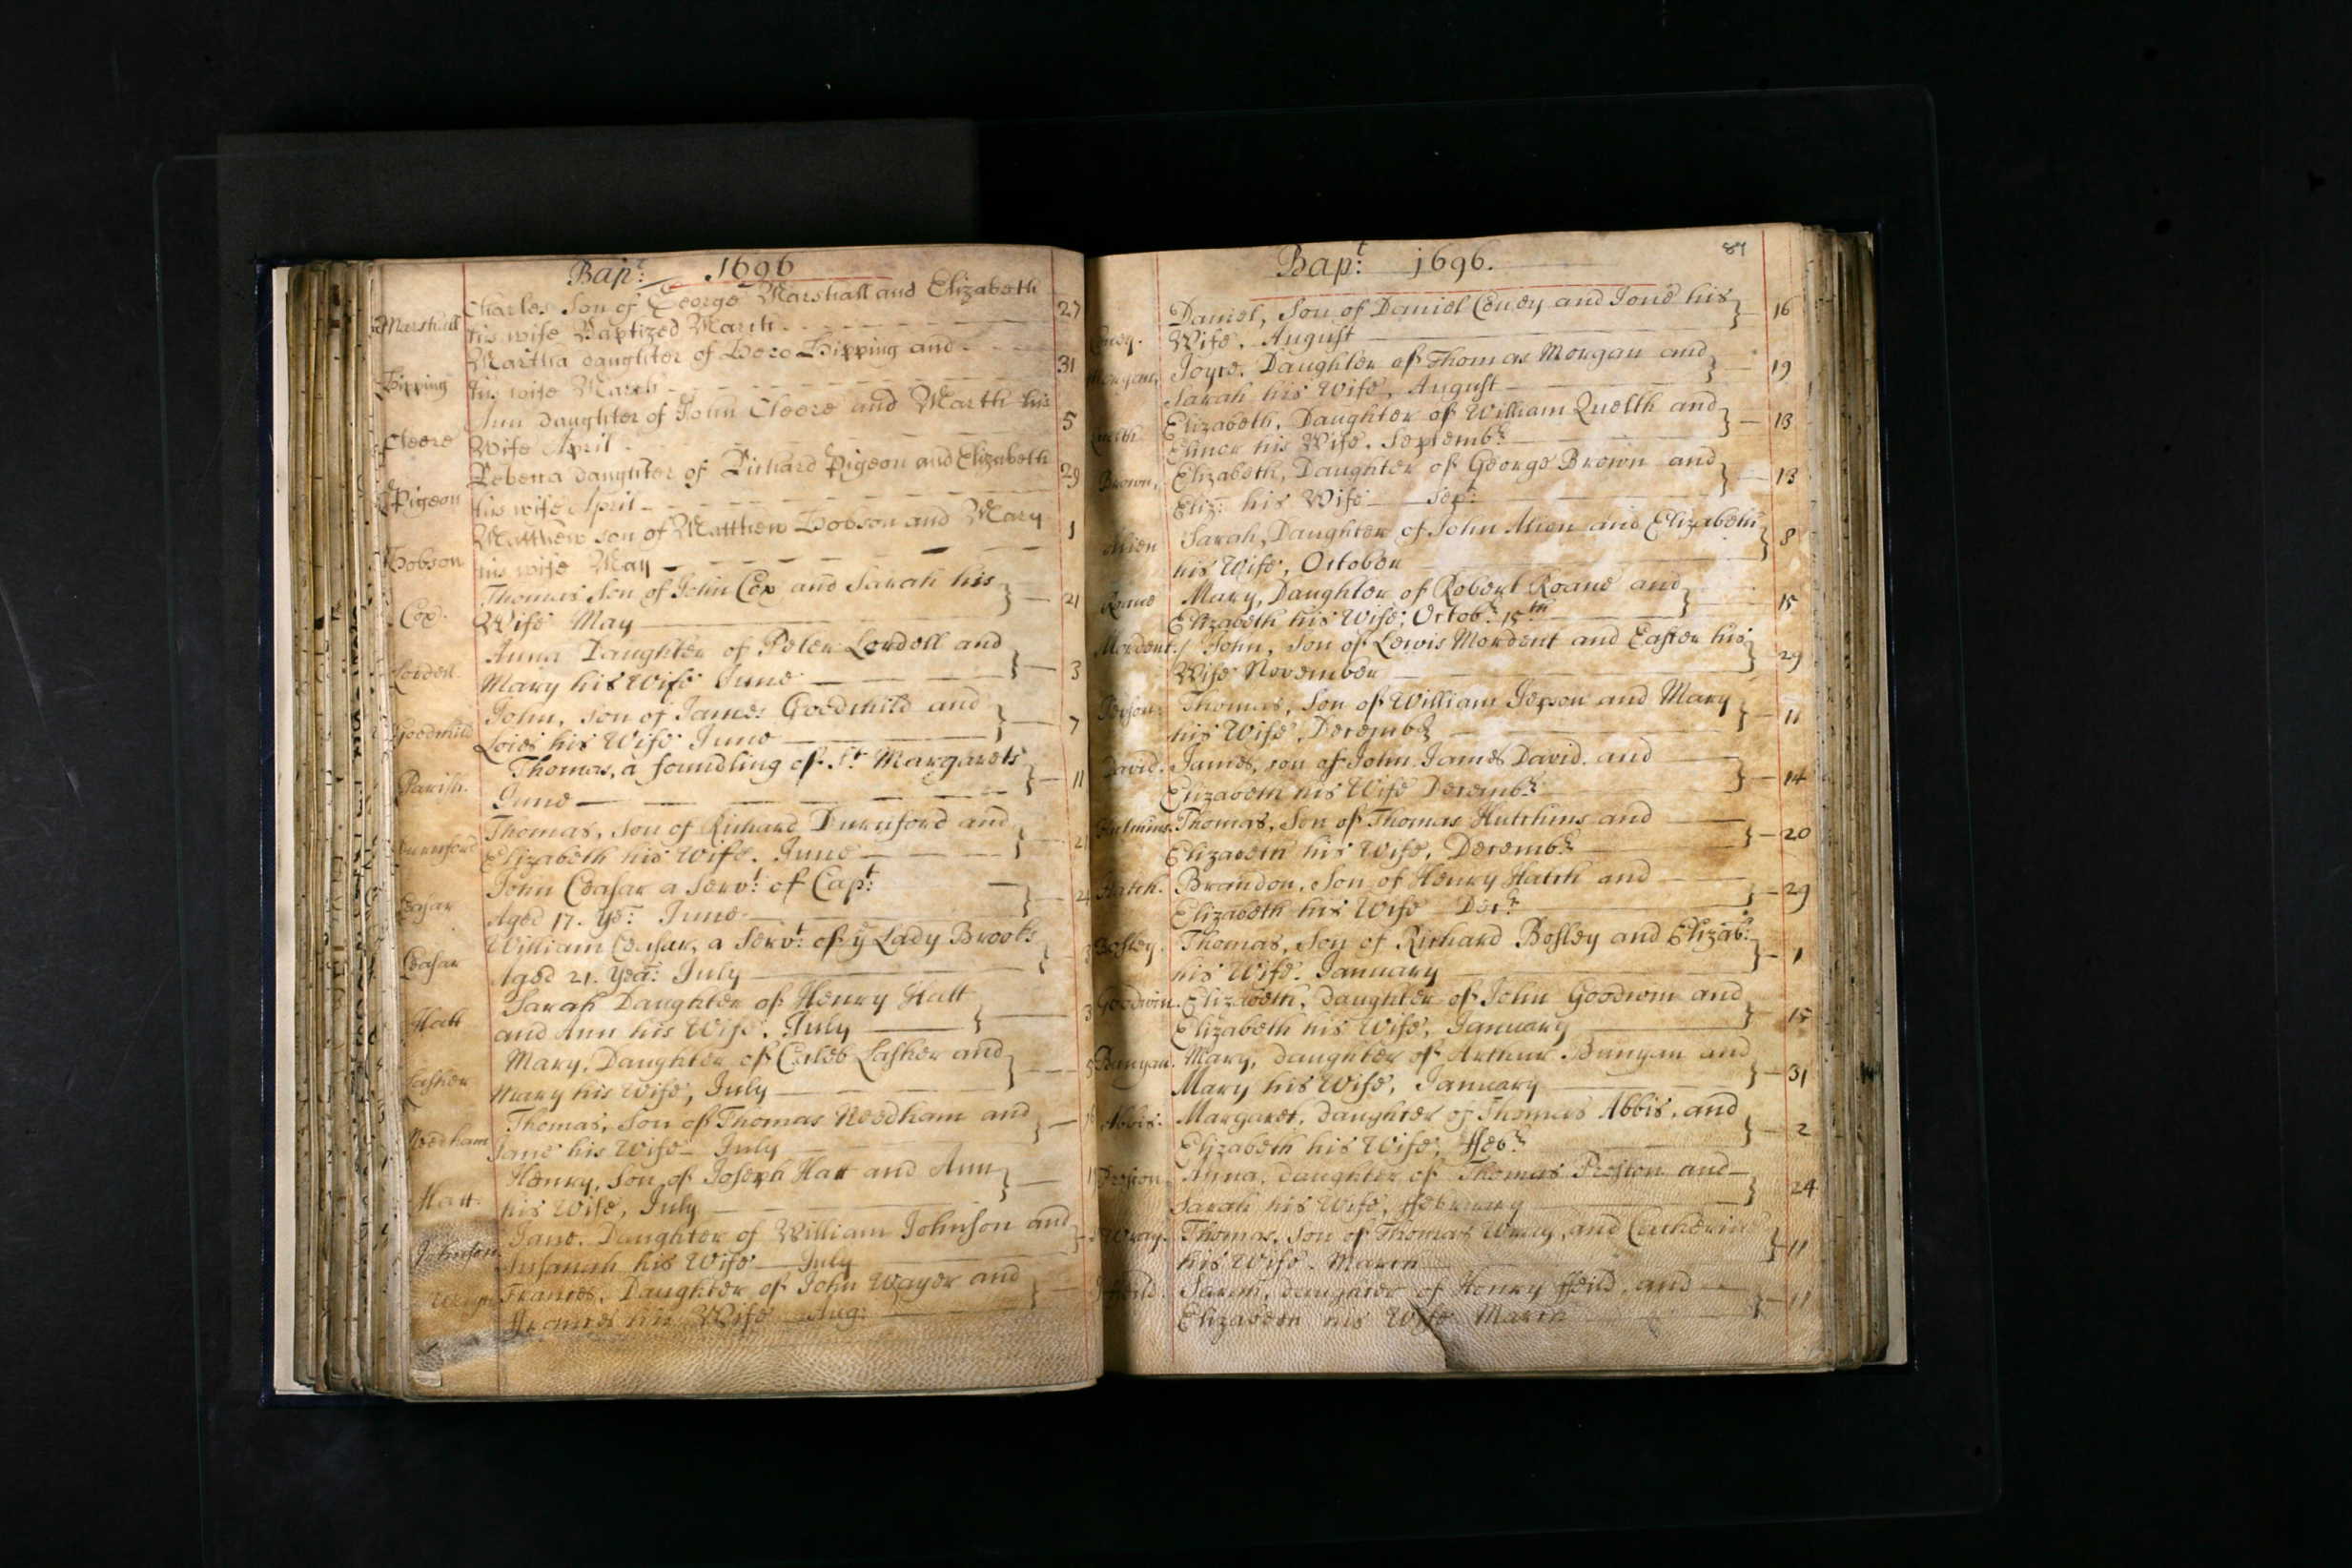 Bapt: 1696
Marshall
Charles Son of George Marshall and Elizabeth
his wife Baptized March 27
Martha daughter of and
his wife March 31
Ann daughter of John Cleere and Marth his
Cleere
Wife April 5
daughter of Richard Pigeon and Elizabeth
Pigeon
his wife April 29
Matthew son of Matthew Hobson and Mary
Hobson
his wife May 1
Thomas Son of John Cox and Sarah his
Cox.
Wife May 21
Anna Daughter of Peter Lordell and
Lordell.
Mary his Wife June 3
John, son of James Goodchild and
Goodchild
Loies his Wife June 7
Thomas, a foundling of St Margarets
Parish.
June 11
Thomas, Son of Richard Durnford and
Durnford
Elizabeth his Wife. June
John Ceasar a Servt: of Capt:
Ceasar
Aged 17. Ye: June
William Ceasar, a Servt: of ye Lady Brooks
Ceasar
Aged 21. Yea: July
Sarah Daughter of Henry Hatt
Hatt
and Ann his Wife. July 3
Mary, Daughter of Caleb Lasher and
Lasher
Mary his Wife, July 5
Thomas, Son of Thomas Needham and
Needham
Jane his Wife July
Henry, Son of Joseph Hatt and Ann
Hatt.
his Wife, July
Jane. Daughter of William Johnson and
Johnson.
Susanah his Wife July
Frances, Daughter of John Wayer and
ffrances his Wife Aug:
Bapt: 1696. 87
Daniel, Son of Daniel Coney and Jone his
Coney.
Wife. August 16
Joyce. Daughter of Thomas Morgan and
Morgan,
Sarah his Wife, August 19
Elizabeth, Daughter of William Quelth and
Quelth
Elinor his Wife. Septembr 13
Elizabeth, Daughter of George Brown and
Brown,
Eliz: his Wife Sep: 13
Sarah, Daughter of John Alien and Elizabeth
Alien
his Wife, October 8
Mary, Daughter of Robert Roane and
Roane
Elizabeth his Wife; Octobr 15th 15
Mordent
John, Son of Lewis Mordent and Easter his
Wife November 29
Thomas, Son of William Jepson and Mary
Jepson:
his Wife, Decembr 11
David.
James, son of John James David. and
Elizabeth his Wife Decembr 14
Hutchins.
Thomas, Son of Thomas Hutchins and
Elizabeth his Wife, Decembr 20
Hatch.
Brandon, Son of Henry Hatch and
Elizabeth his Wife Decr 29
Bosley.
Thomas, Son of Richard Bosley and Elizabth
his Wife. January 1
Goodwin.
Elizabeth, daughter of John Goodwin and
Elizabeth his Wife, January 15
Bunyan.
Mary, daughter of Arthur Bunyan and
Mary his Wife, January 31
Abbis:
Margaret, daughter of Thomas Abbis, and
Elizabeth his Wife; ffebr 2
Preston
Anna, daughter of Thomas Preston and
Sarah his Wife, ffebruary 24
Wray.
Thomas, Son of Thomas Wray, and Catherin
his Wife. March 11
ffeild.
Sarah, daughter of Henry ffeild, and
Elizabeth his Wife March 11